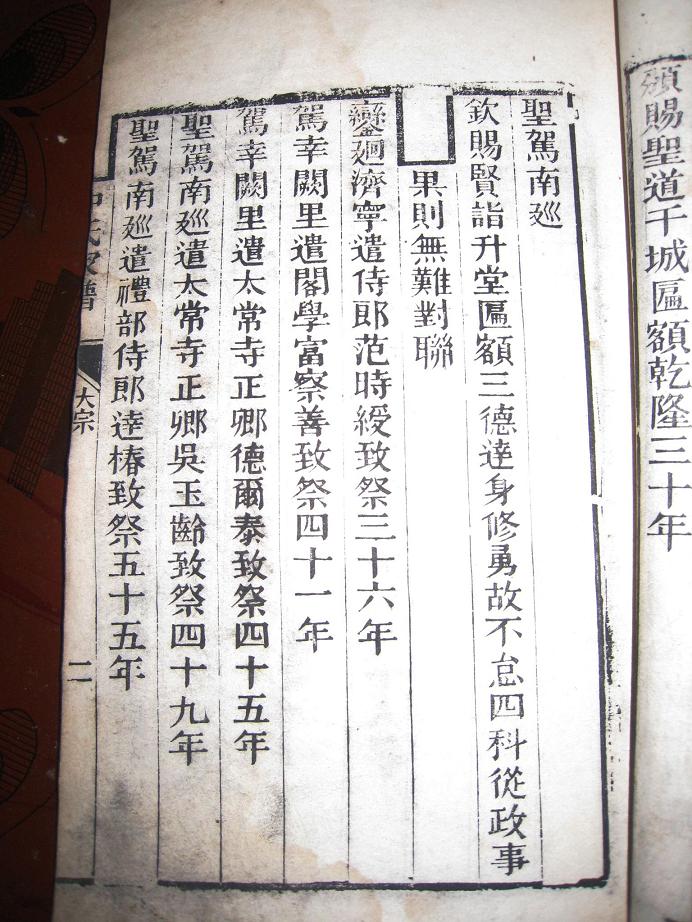 頒賜聖道干城匾額乾隆三十年
聖駕南廵
欽賜賢詣升堂匾額三德達身修勇故不怠四科從政事
果則無難對聯
鑾廻濟寧遣侍郎范時綬致祭三十六年
駕幸闕里遣閣學富察善致祭四十一年
駕幸闕里遣太常寺正卿德爾泰致祭四十五年
聖駕南廵遣太常寺正卿吳玉齡致祭四十九年
聖駕南廵遣禮部侍郎達椿致祭五十五年
氏家譜
大宗
二